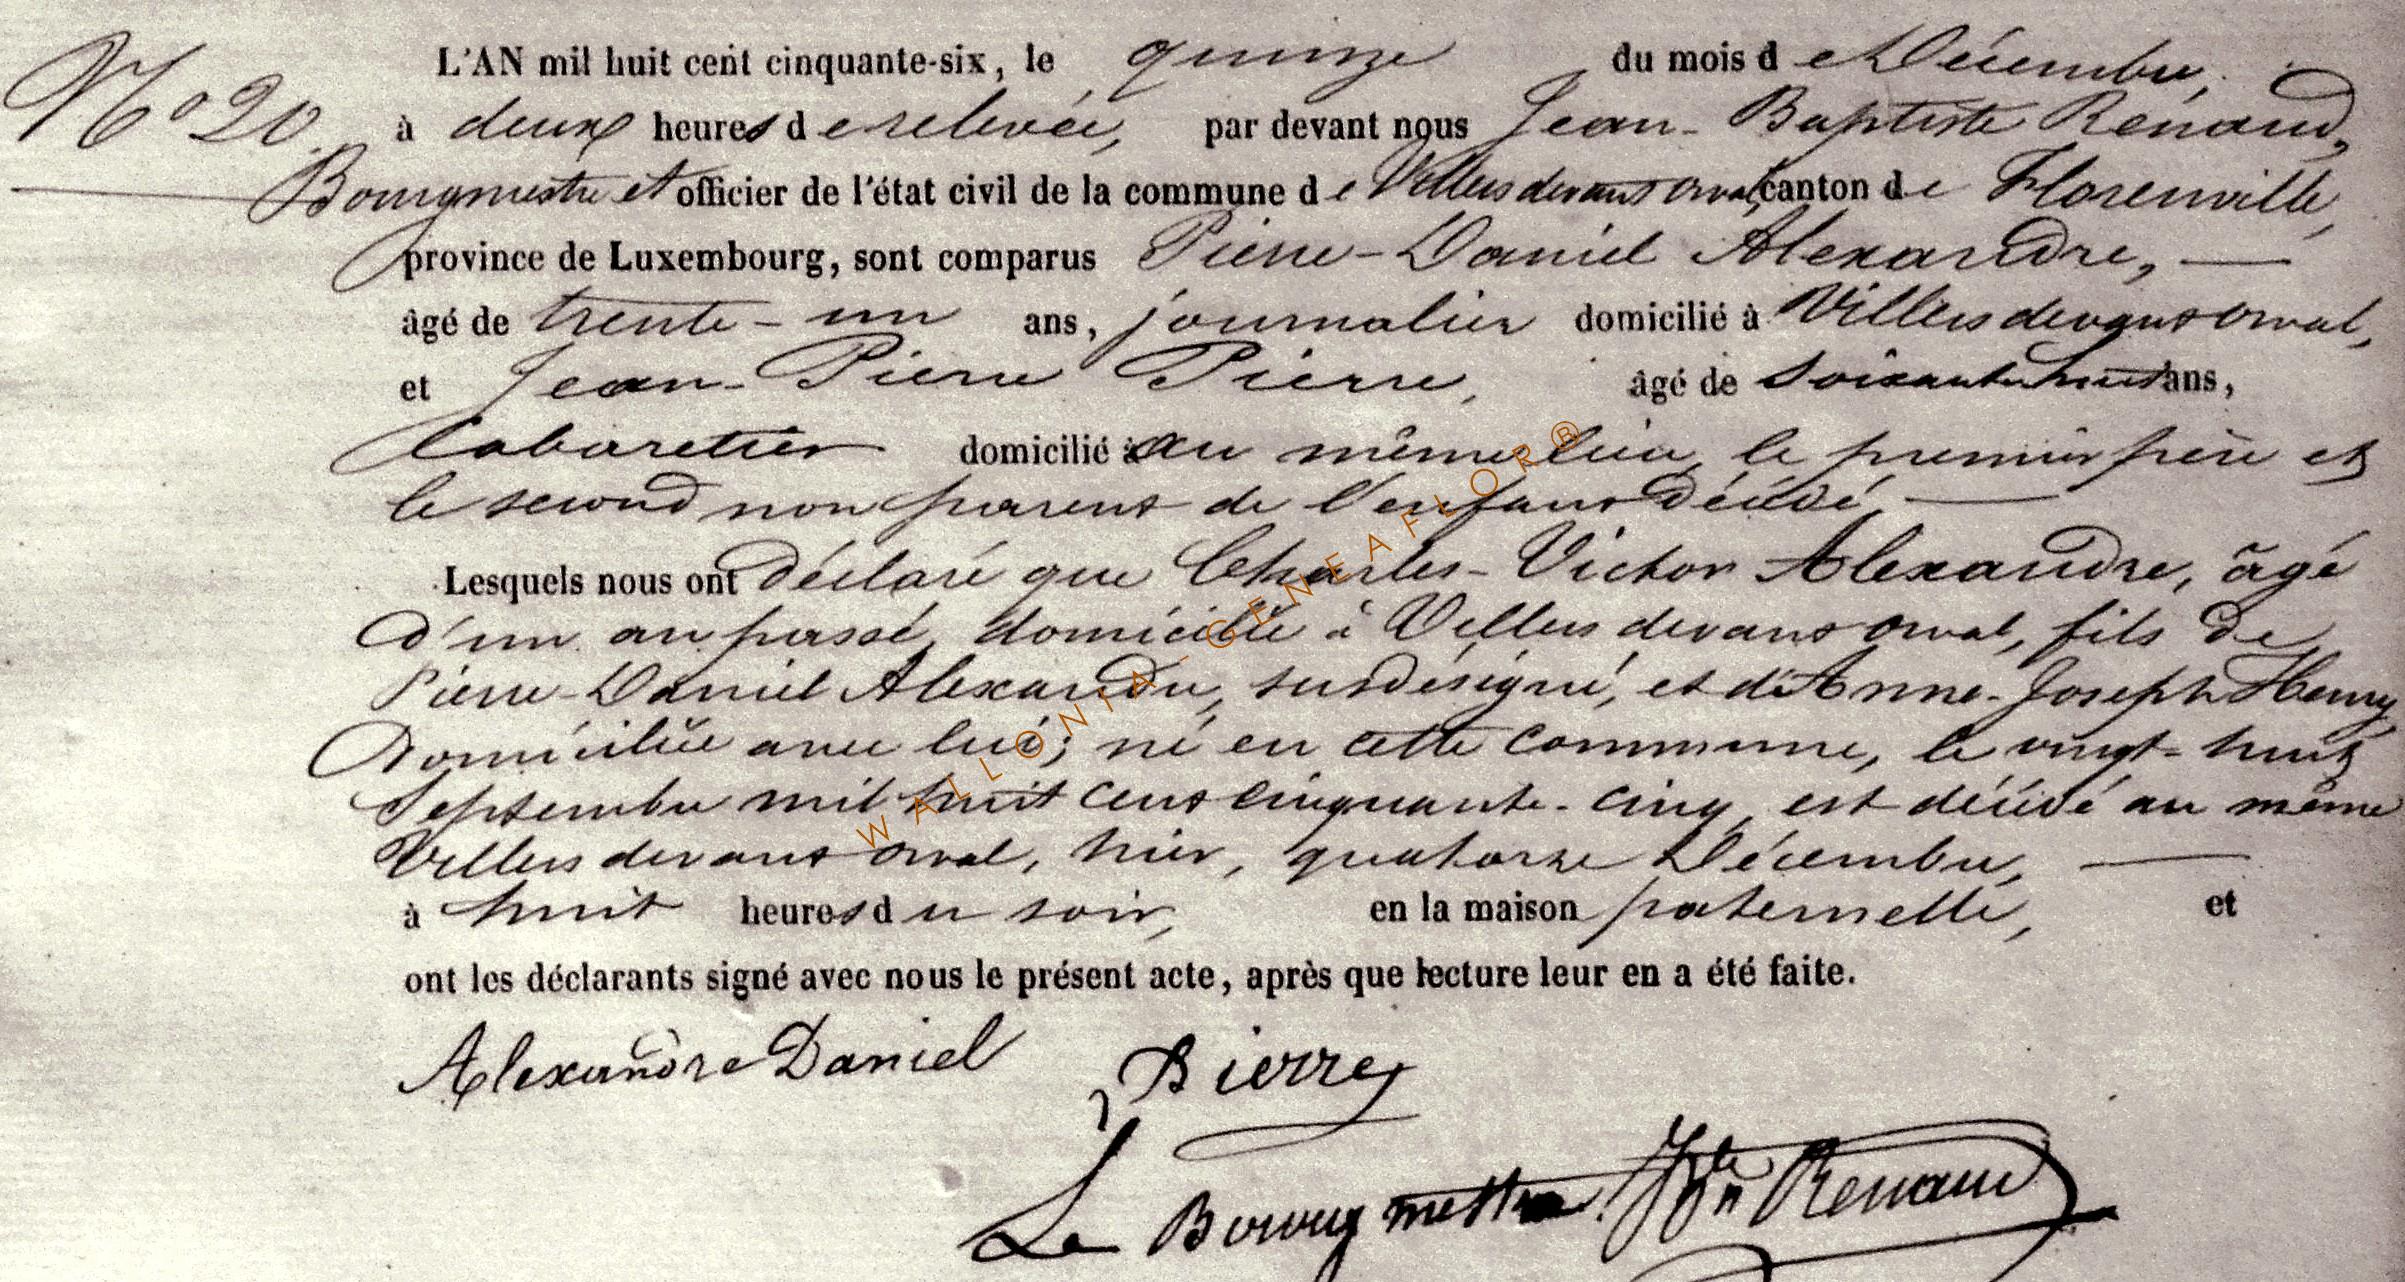 L'AN mil huit cent cinquante-six, le quinze du mois de Décembre,
N° 20. à deux heures de relevée, par devant nous Jean-Baptiste Renaud,
Bourgmestre et officier de l'état civil de la commune de Villers devant orval, canton de Florenville,
province de Luxembourg, sont comparus Pierre-Daniel Alexandre,
âgé de trente-un ans, journalier domicilié à Villers devant orval,
et Jean-Pierre Pierre, âgé de soixante huit ans,
Cabaretier domicilié au même lieu, le premier père et
le second non parent de l'enfant décédé
Lesquels nous ont déclaré que Charles-Victor Alexandre, âgé
d'un an passé, domicilié à Villers devant orval, fils de
Pierre-Daniel Alexandre, susdésigné, et d'Anne-Joseph Henry,
domiciliée avec lui; né en cette commune, le vingt-huit
Septembre mil huit cent cinquante-cinq, est décédé au même
Villers devant orval, hier, quatorze Décembre,
à huit heures du soir, en la maison paternelle, et
ont les déclarants signé avec nous le présent acte, après que lecture leur en a été faite.
Alexandre Daniel Pierre
Le Bourgmestre Jn Bte Renaud
WALLONIA-GENEAFLOR®